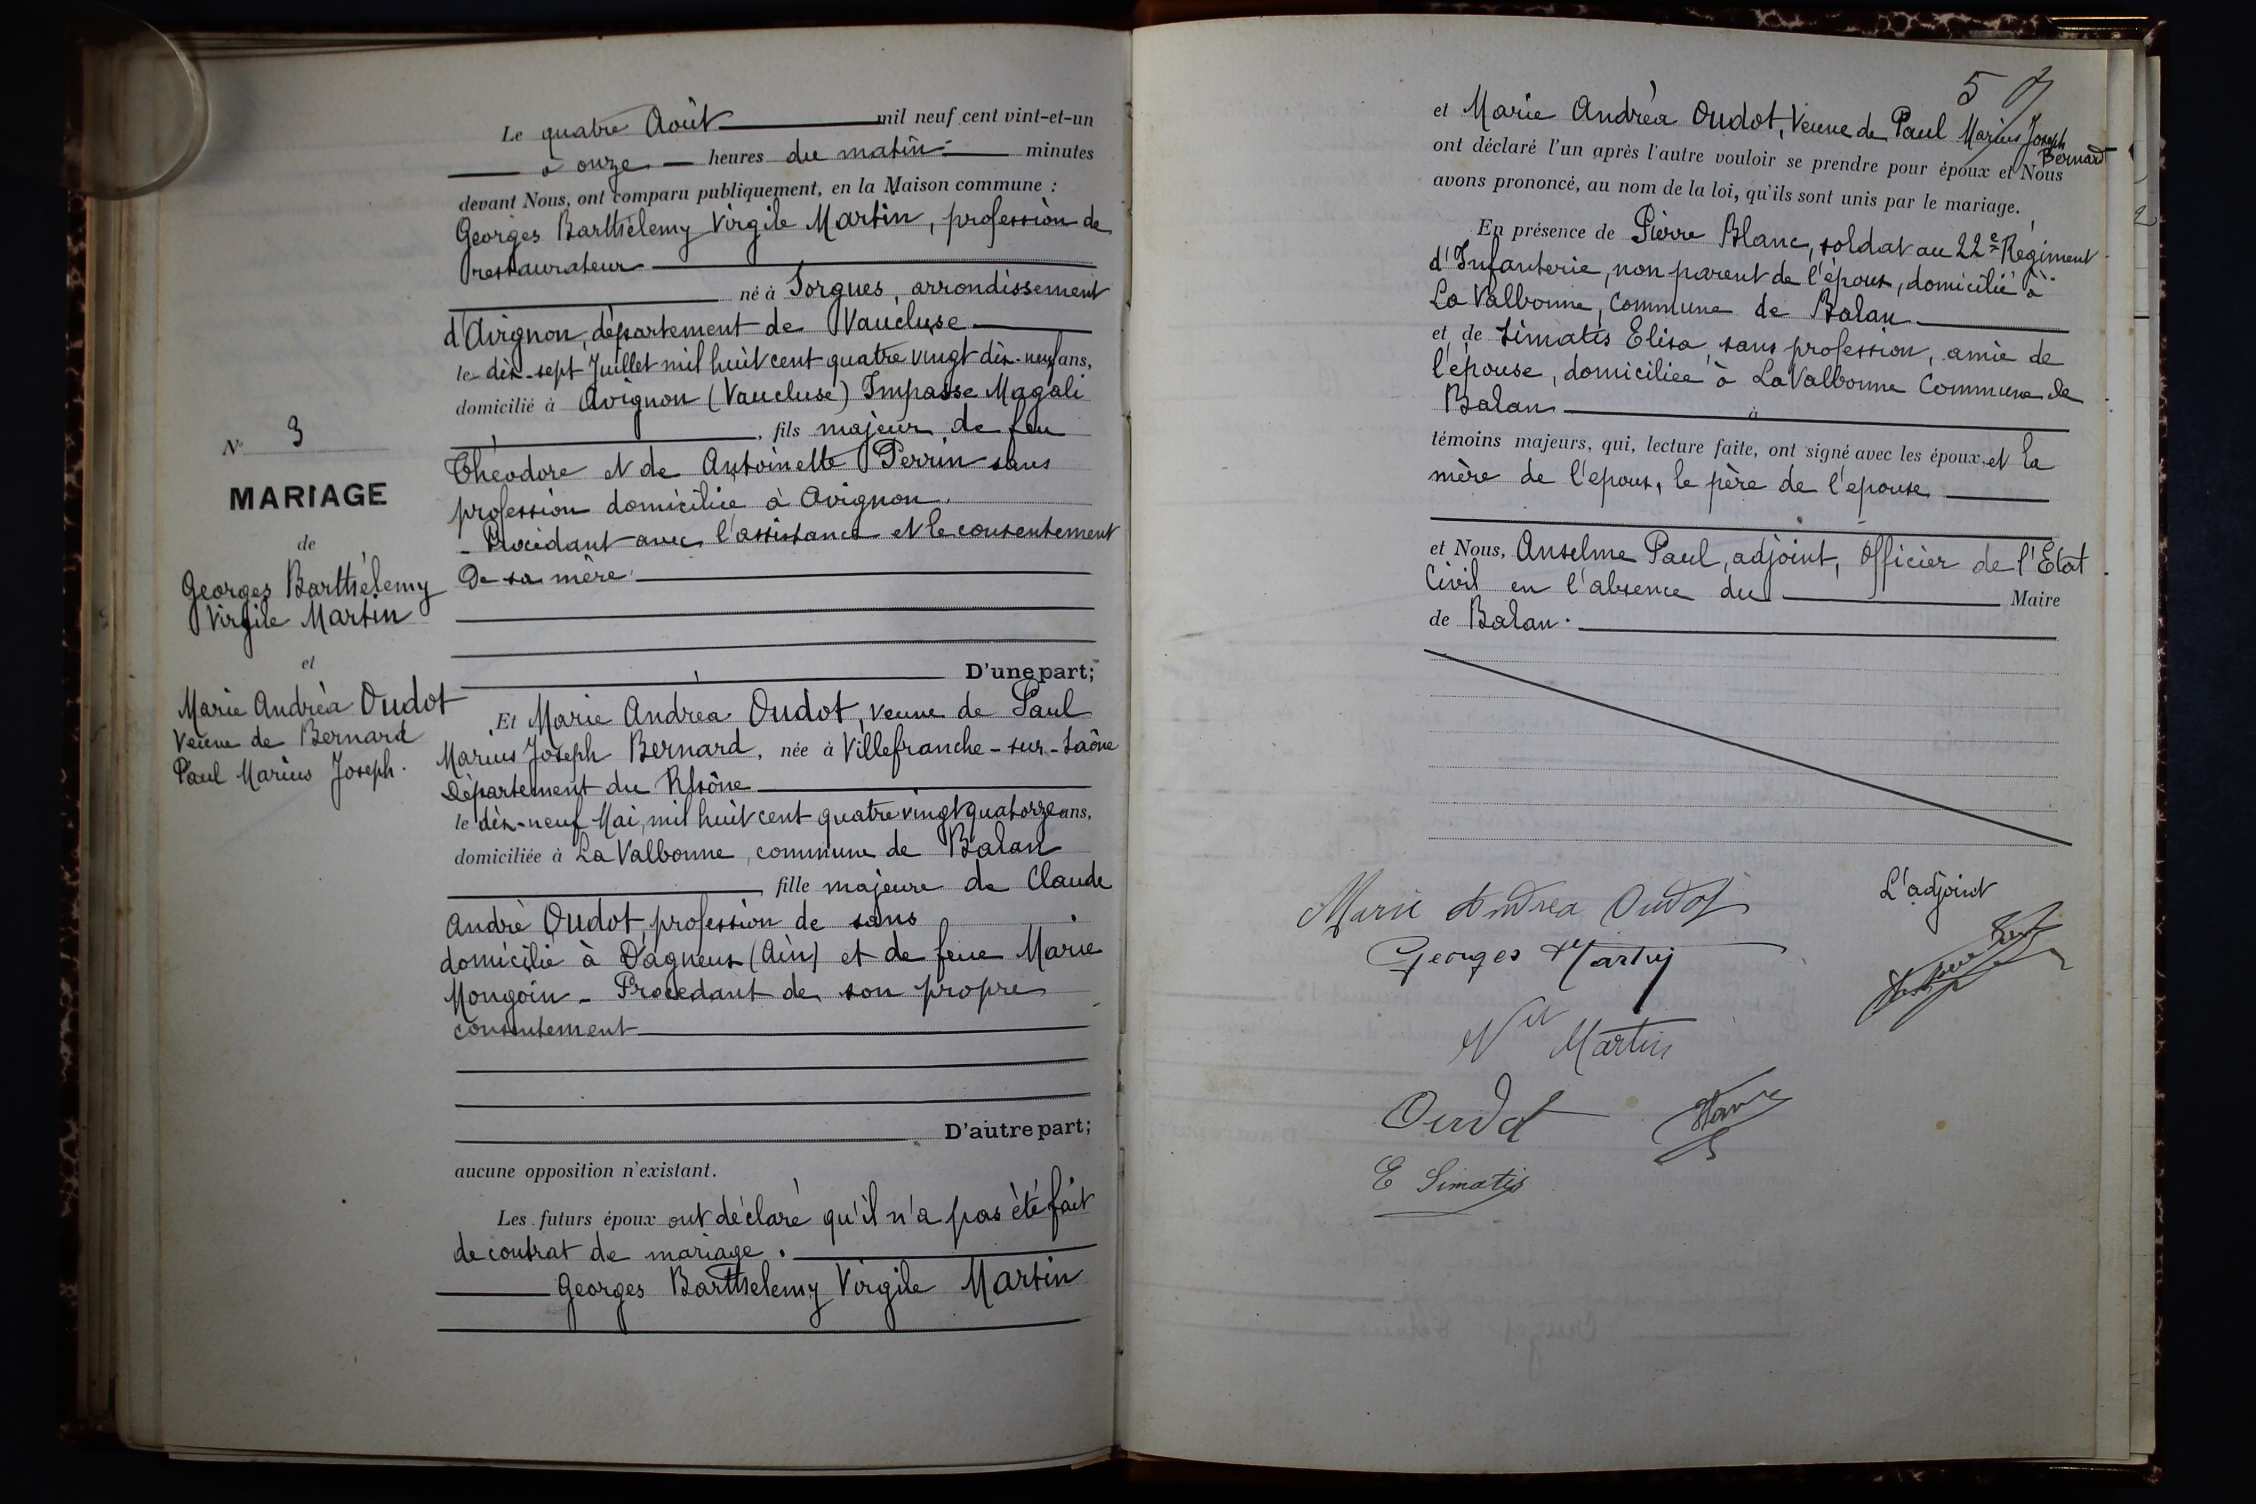 Le quatre Août mil neuf cent vint-et-un
à onze heures du matin minutes
devant Nous, ont comparu publiquement, en la Maison commune :
Georges Barthélemy Virgile Martin, profession de
restaurateur
né à Sorgues, arrondissement
d'Avignon, département de Vaucluse
le dix-sept Juillet mil huit cent quatre vingt dix-neuf ans,
domicilié à Avignon (Vaucluse) Impasse Magali
, fils majeur de feu
Théodore et de Antoinette Perrin sans
profession domiciliée à Avignon.
- Procédant avec l'assistance et le consentement
De sa mère.
D'une part;
N° 3
MARIAGE
de
Georges Barthélemy
Virgile Martin
et
Marie Andréa Oudot
Veuve de Bernard
Paul Marius Joseph.
Et Marie Andréa Oudot, veuve de Paul
Marius Joseph Bernard, née à Villefranche-sur-Saône
Département du Rhône
le dix-neuf Mai, mil huit cent quatre vingt quatorze ans,
domiciliée à La Valbonne, commune de Balan
fille majeure de Claude
André Oudot, profession de sans
domicilié à Dagneux (Ain) et de feue Marie
Mongoin - Procedant de son propre
consentement
D'autre part;
aucune opposition n'existant.
Les futurs époux ont déclaré qu'il n'a pas été fait
de contrat de mariage.
Georges Barthelemy Virgile Martin
5
et Marie Andréa Oudot, Veuve de Paul Marius Joseph
Bernard
ont déclaré l'un après l'autre vouloir se prendre pour époux et Nous
avons prononcé, au nom de la loi, qu'ils sont unis par le mariage.
En présence de Pierre Blanc, soldat au 22e Régiment
d'Infanterie, non parent de l'époux, domicilié à
La Valbonne, Commune de Balan
et de Simatis Elisa, sans profession, amie de
l'épouse, domiciliée à La Valbonne Commune de
Balan à
témoins majeurs, qui, lecture faite, ont signé avec les époux, et la
mère de l'epoux, le père de l'epouse
et Nous, Anselme Paul, adjoint, Officier de l'Etat
Civil en l'absence du Maire
de Balan.
Marie Andréa Oudot
L'adjoint
Georges Martin
Martin
Oudot
E Simatis